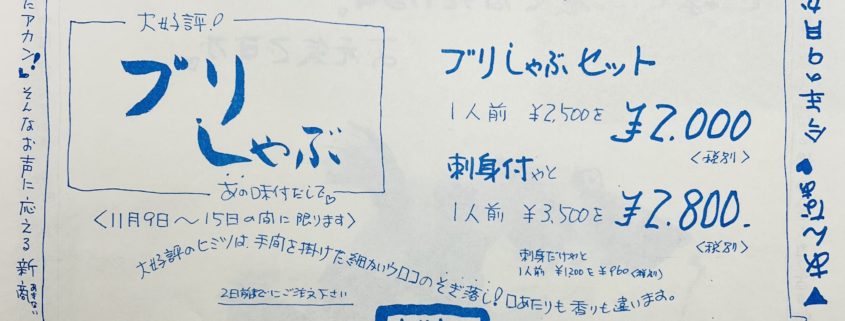 大好評!
ブリ
しゃぶ
あの味付だしで♡
<11月9日〜15日の間に限ります>
大好評のヒミツは、手間を掛けた細かいウロコのそぎ落し!口あたりも香りも違います。
2日前までにご注文下さい
ブリしゃぶセット
1人前 ¥2,500を ¥2.000
<税別>
刺身付やと
1人前 ¥3,500を ¥2.800.
<税別>
刺身だけやと
1人前 ¥1200を¥960<税別>
にアカン!
そんなお声に応える新商
今年の9月か
あんなぁ